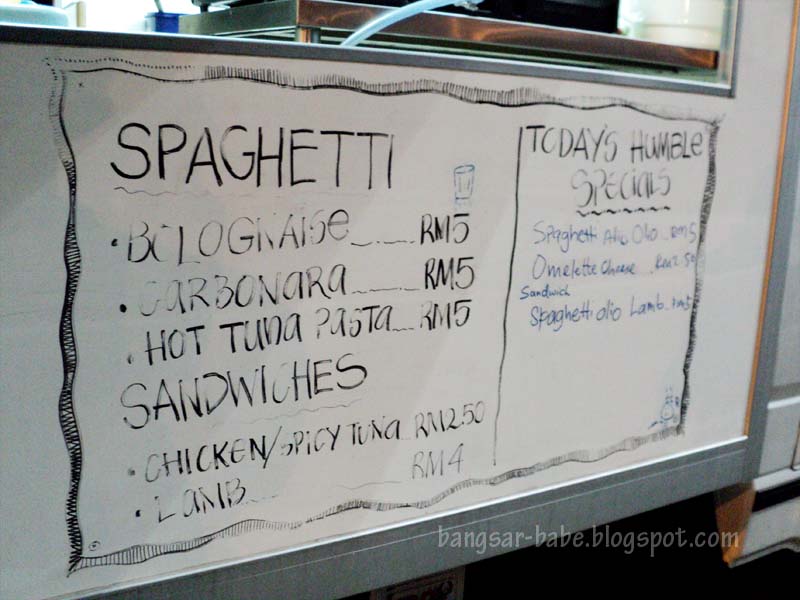 SPAGHETTI
• BOLOGNAISE ..... RM5
• CARBONARA ..... RM5
• HOT TUNA PASTA ... RM5
SANDWICHES
• CHICKEN/SPICY TUNA .. RM2.50
• LAMB ..... RM4
TODAY'S HUMBLE
SPECIALS
Spaghetti Alio Olio .. RM5
Omelette Cheese .. RM2.50
Sandwich
Spaghetti olio Lamb .. RM5
bangsar-babe.blogspot.com